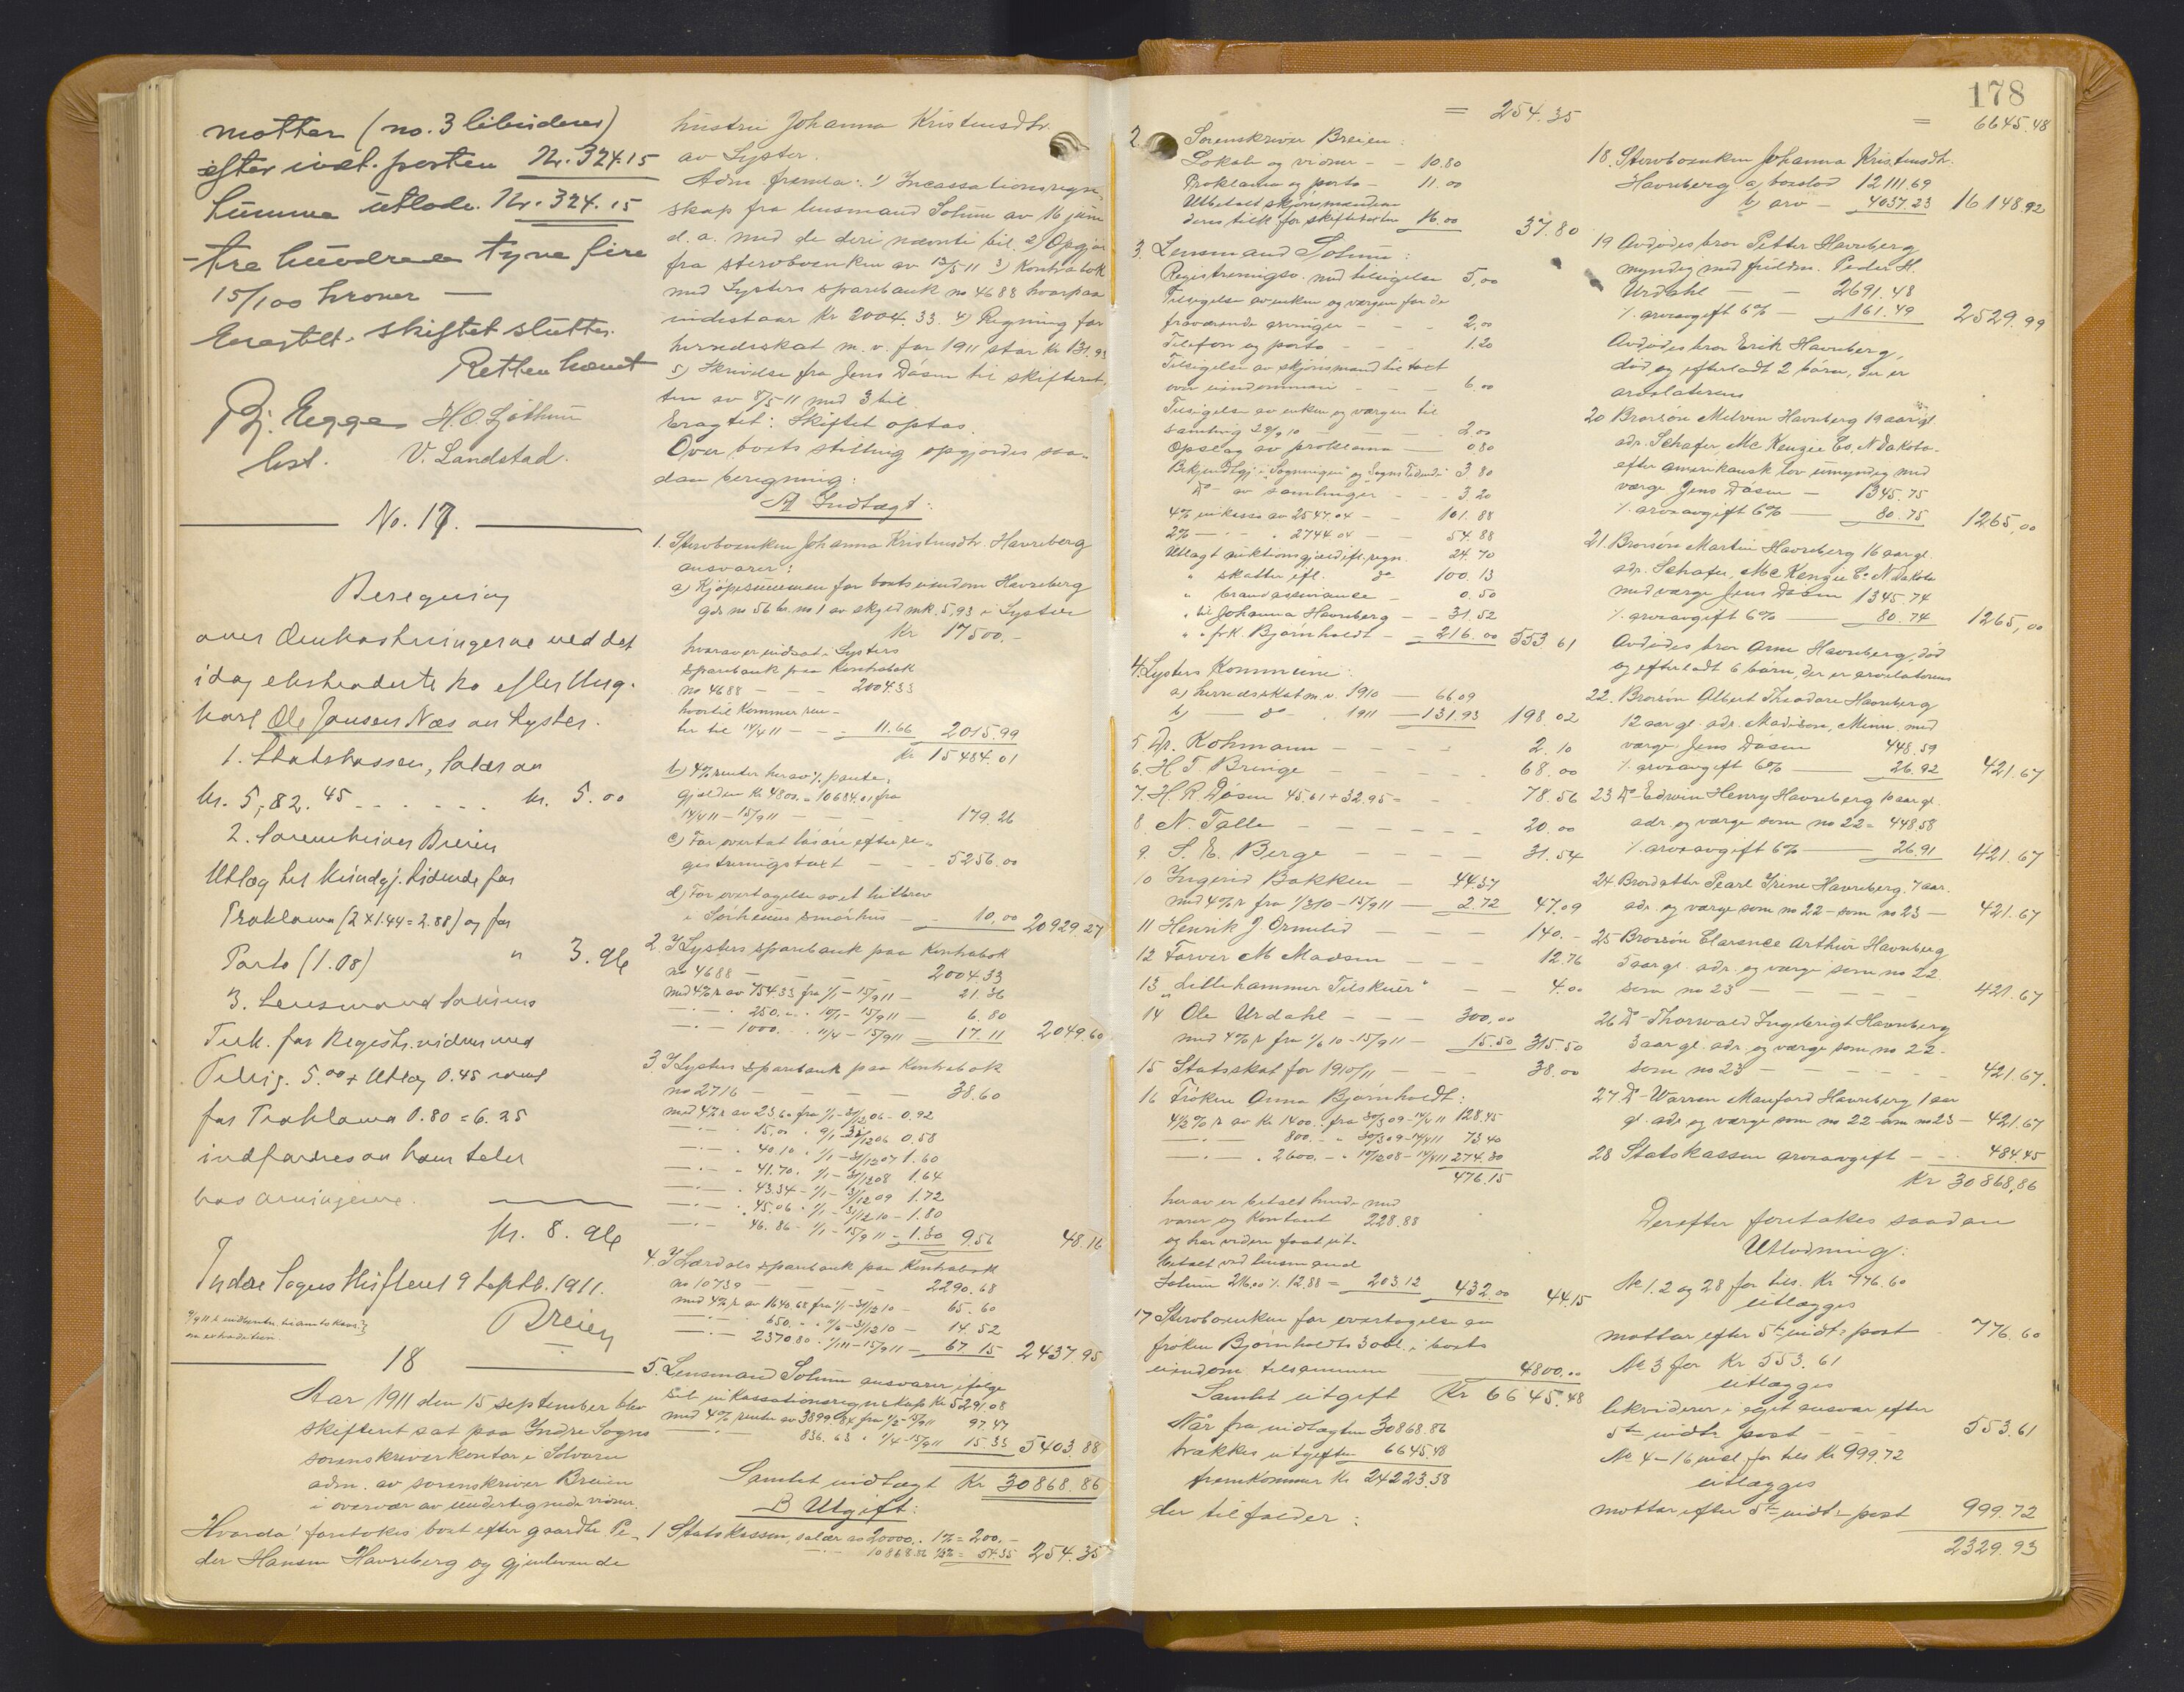 motter (no. 3 likviderer)
efter indt. posten Kr. 324.15
Summa utlodn. Kr. 324.15
-tre hundrede tyve fire
15/100 kroner —
Eragtet: skiftet sluttes.
Retten hævet
Bj. Hegge H.O. Gjøthun
V. Landstad.
No. 17.
Beregning
over Omkostningerne ved det
idag ekstraderte bo efter Ung-
karl Ole Jansen Næs av Lyster.
1. Statskassen, Salær av
kr. 5,82.45 - - - - - kr. 5.00
2. Sorenskriver Breien
Utlæg til kundgj. tidende for
Proklama (2 x 1.44 = 2.88) og for
Porto (1.08) " 3.96
3. Lensmand Solums
Tilk. for Registr. vidner med
Tilsig. 5.00 + Utlæg 0.45 samt
for Proklama 0.80 = 6.25
indfordres av ham selv
hos arvingerne.
kr. 8.96
Indre Sogns Skifteret 9 septb. 1911.
Breien
18
Aar 1911 den 15 september blev
skifteret sat paa Indre Sogns
sorenskriverkontor i Solvorn
adm. av sorenskriver Breien
i overvær av undertegnede vidner.
Hvorda' foretokes boet efter gaardbr. Pe-
der Hansen Havreberg og gjenlevende
hustru Johanna Kristensdtr.
av Lyster.
Adm. fremla: 1) Incassationsregn-
skap fra lensmand Solum av 16 juni
d. a. med de deri nævnte bil. 2) Opgjør
fra stervboenken av 13/5 11 3) Kontrabok
med Lysters sparebank no 4688 hvorpaa
indestaar kr 2004.33. 4) Regning for
herredsskat m. v. for 1911 stor kr 131.93
5) Skrivelse fra Jens Døsen til skifteret-
ten av 8/5 11 med 3 bil.
Eragtet: Skiftet optas.
Over boets stilling opgjordes saa-
dan beregning:
A Indtægt:
1. Stervboenken Johanna Kristensdtr. Havreberg
ansvarer:
a) Kjøpesummen for boets eiendom Havreberg
gds no 56 br. no 1 av skyld mk. 5,93 i Lyster
Kr 17500,-
hvorav er indsat i Lysters
sparebank paa Kontrabok
no 4688 - - - 2004.33
hvortil kommer ren-
ter til 14/4 11 - - - 11.66 2015.99
Kr 15484.01
b) 4% renter herav ÷ pante-
gjælden kr 4800,- = 10684.01 fra
14/4 11 - 15/9 11 - - - 179.26
c) For overtat løsøre efter re-
gistreringstaxt - - - 5256.00
d) For overtagelse av et luttbrev
i Sørheims smørhus - - 10,00 20929.27
2 I Lysters sparebank paa Kontrabok
no 4688 - - - 2004.33
med 4% r av 754.33 fra 1/1 - 15/9 11 - 21.36
— . — . 250. - . 10/1 - 15/9 11 - 6.80
— . — 1000. . . 11/4 - 15/9 11 - 17.11 2049.60
3. I Lysters sparebank paa Kontrabok
no 2716 - - - 38.60
med 4% r av 23,60 fra 1/1 - 31/12 06 - 0.92
— . — . 15,00 . 9/1 - 31/12 06 0.58
— . — . 40.10 . 1/1 - 31/12 07 1.60
— . — . 41.70. 1/1 - 31/12 08 1.64
— . — . 43.34 - 1/1 - 31/12 09 1.72
— . — . 45.06 . 1/1 - 31/12 10 - 1.80
— . — 46.86 - 1/1 - 15/9 11 - 1.30 9.56 48.16
4. I Lærdals sparebank paa Kontrabok
no 10739 - - 2290.68
med 4% r av 1640.68 fra 1/1 - 31/12 10 - 65.60
— . — 650. - . 11/6 - 31/12 10 - 14.52
— . — 2370.80 . 1/1 11 - 15/9 11 - 67.15 2437.95
5. Lensmand Solum ansvarer ifølge
bil. inkassationsregnskap Kr 5291.08
med 4% renter av 3899.84 fra 1/2 - 15/9 11 97.47
— . — 836.63 . 1/4 - 15/9 11 15.33 5403.88
Samlet indtægt Kr 30868.86
B Utgift:
1 Statskassen, salær av 20000.- 1% = 200,-
— . — 10868.86 ½% = 54.35 254.35
178
= 254.35
2. Sorenskriver Breien:
Lokale og vidner - - 10.80
Proklama og porto - 11.00
Utbetalt skjønsmændene
deres tilk. for skiftetakster 16.00 37.80
3. Lensmand Solum:
Registreringsv. med tilsigelse 5,00
Tilsigelse av enken og værgen for de
fraværende arvinger - - - 2,00
Telefon og porto - - - 1.20
Tilsigelse av skjønsmænd til taxt
over eiendommen - - - 6.00
Tilsigelse av enken og værgen til
samling 28/9 10 - - - 2.00
Opslag av proklama - 0.80
Bekjendtgj. i "Sogningen" og Sogns Tidende 3.80
Do av samlinger - - 3.20
4% inkasso av 2547.04 - - 101.88
2% — . — . 2744.04 - 54.88
Utlagt auktionsgjæld ifl. regn. 24.70
" skatter ifl. do 100.13
" brandassurance - 0.50
" til Johanna Havreberg - - 31.52
" " frk. Bjørnholdt - - 216.00 553.61
4. Lysters Kommune:
a) herredsskat m. v. 1910 - 66.09
b) — do — . 1911 - 131.93 198.02
5. Dr. Kohmann - - - - 2.10
6. H T Bringe - - - - 68.00
7. H. R. Døsen 45.61 + 32.95 = - - 78.56
8. N. Talle - - - - 20.00
9. S. E. Berge - - - - 31.54
10 Ingerid Bakken - 44.37
med 4% r fra 1/3 10 - 15/9 11 - 2.72 47.09
11 Henrik J Ormelid - - - 140.-
12 Farver M Madsen - - - 12.76
13 "Lillehammer Tilskuer" - - 4.00
14 Ole Urdahl - - - 300,00
med 4% r fra 1/6 10 - 15/9 11 - 15.50 315.50
15 Statsskat for 1910/11 - - - 38.00
16 Frøken Anna Bjørnholdt:
4½% r av kr 1400.- fra 30/3 09 - 14/4 11 128.45
— . — 800. - - 30/3 09 - 14/4 11 73.40
— . — . 2600.- - 10/12 08 - 14/4 11 274.30
476.15
herav er betalt hende med
varer og kontant 228.88
og har videre faat ut-
betalt ved lensmand
Solum 216,00 ÷ 12.88 = 203.12 432.00 44.15
17 Stervboenken for overtagelse av
frøken Bjørnholdts 3 obl. i boets
eiendom tilsammen 4800,00
Samlet utgift Kr 6645.48
Når fra indtægten 30868.86
trækkes utgiften 6645.48
fremkommer kr 24223.38
der tilfalder:
= 6645.48
18. Stervboenken Johanna Kristensdtr.
Havreberg a) boslod 12111.69
b) arv - 4037.23 16148.92
19 Avdødes bror Petter Havreberg
myndig med fuldm. Peder H.
Urdahl - - 2691.48
÷ arveavgift 6% - 161.49 2529.99
Avdødes bror Erik Havreberg,
død og efterladt 2 børn, der er
arvelaterens
20 Brorsøn Melvin Havreberg 19 aar gl.
adr. Schafer, Mc Kenzie Co, N Dakota.
efter amerikansk lov umyndig med
værge Jens Døsen - 1345.75
÷ arveavgift 6% - 80.75 1265,00
21. Brorsøn Martin Havreberg 16 aar gl.
adr. Schafer, Mc Kenzie Co N Dakota
med værge Jens Døsen 1345.74
÷ arveavgift 6% - 80.74 1265,00
Avdødes bror Arne Havreberg, død
og efterladt 6 børn, der er arvelaterens
22. Brorsøn Albert Theodore Havreberg
12 aar gl. adr. Madison, Minn. med
værge Jens Døsen 448.59
÷ arveavgift 6% - 26.92 421.67
23 Do Edwin Henry Havreberg 10 aar gl.
adr. og værge som no 22 = 448.58
÷ arveavgift 6% - 26.91 421.67
24 Brordatter Pearl Irene Havreberg. 7 aar.
adr. og værge som no 22 - som no 23 - 421.67
25 Brorsøn Clarence Arthur Havreberg
5 aar gl. adr. og værge som no 22
som no 23 - - - 421.67
26 Do Thorwald Ingebrigt Havreberg
3 aar gl. adr. og værge som no 22 -
som no 23 - - - 421.67.
27 Do Warren Manford Havreberg 1 aar
gl. adr. og værge som no 22 - som no 23 - 421.67
28 Statskassen arveavgift - - - 484.45
Kr 30868,86
Derefter foretokes saadan
Utlodning:
No 1. 2 og 28 for tils. Kr 776.60
utlægges
mottar efter 5te indt. post 776.60
No 3 for Kr 553.61
utlægges
likviderer i eget ansvar efter
5te indt. post - - 553.61
No 4 - 16 incl. for tils Kr 999.72
utlægges
mottar efter 5te indt. post 999.72
2329.93